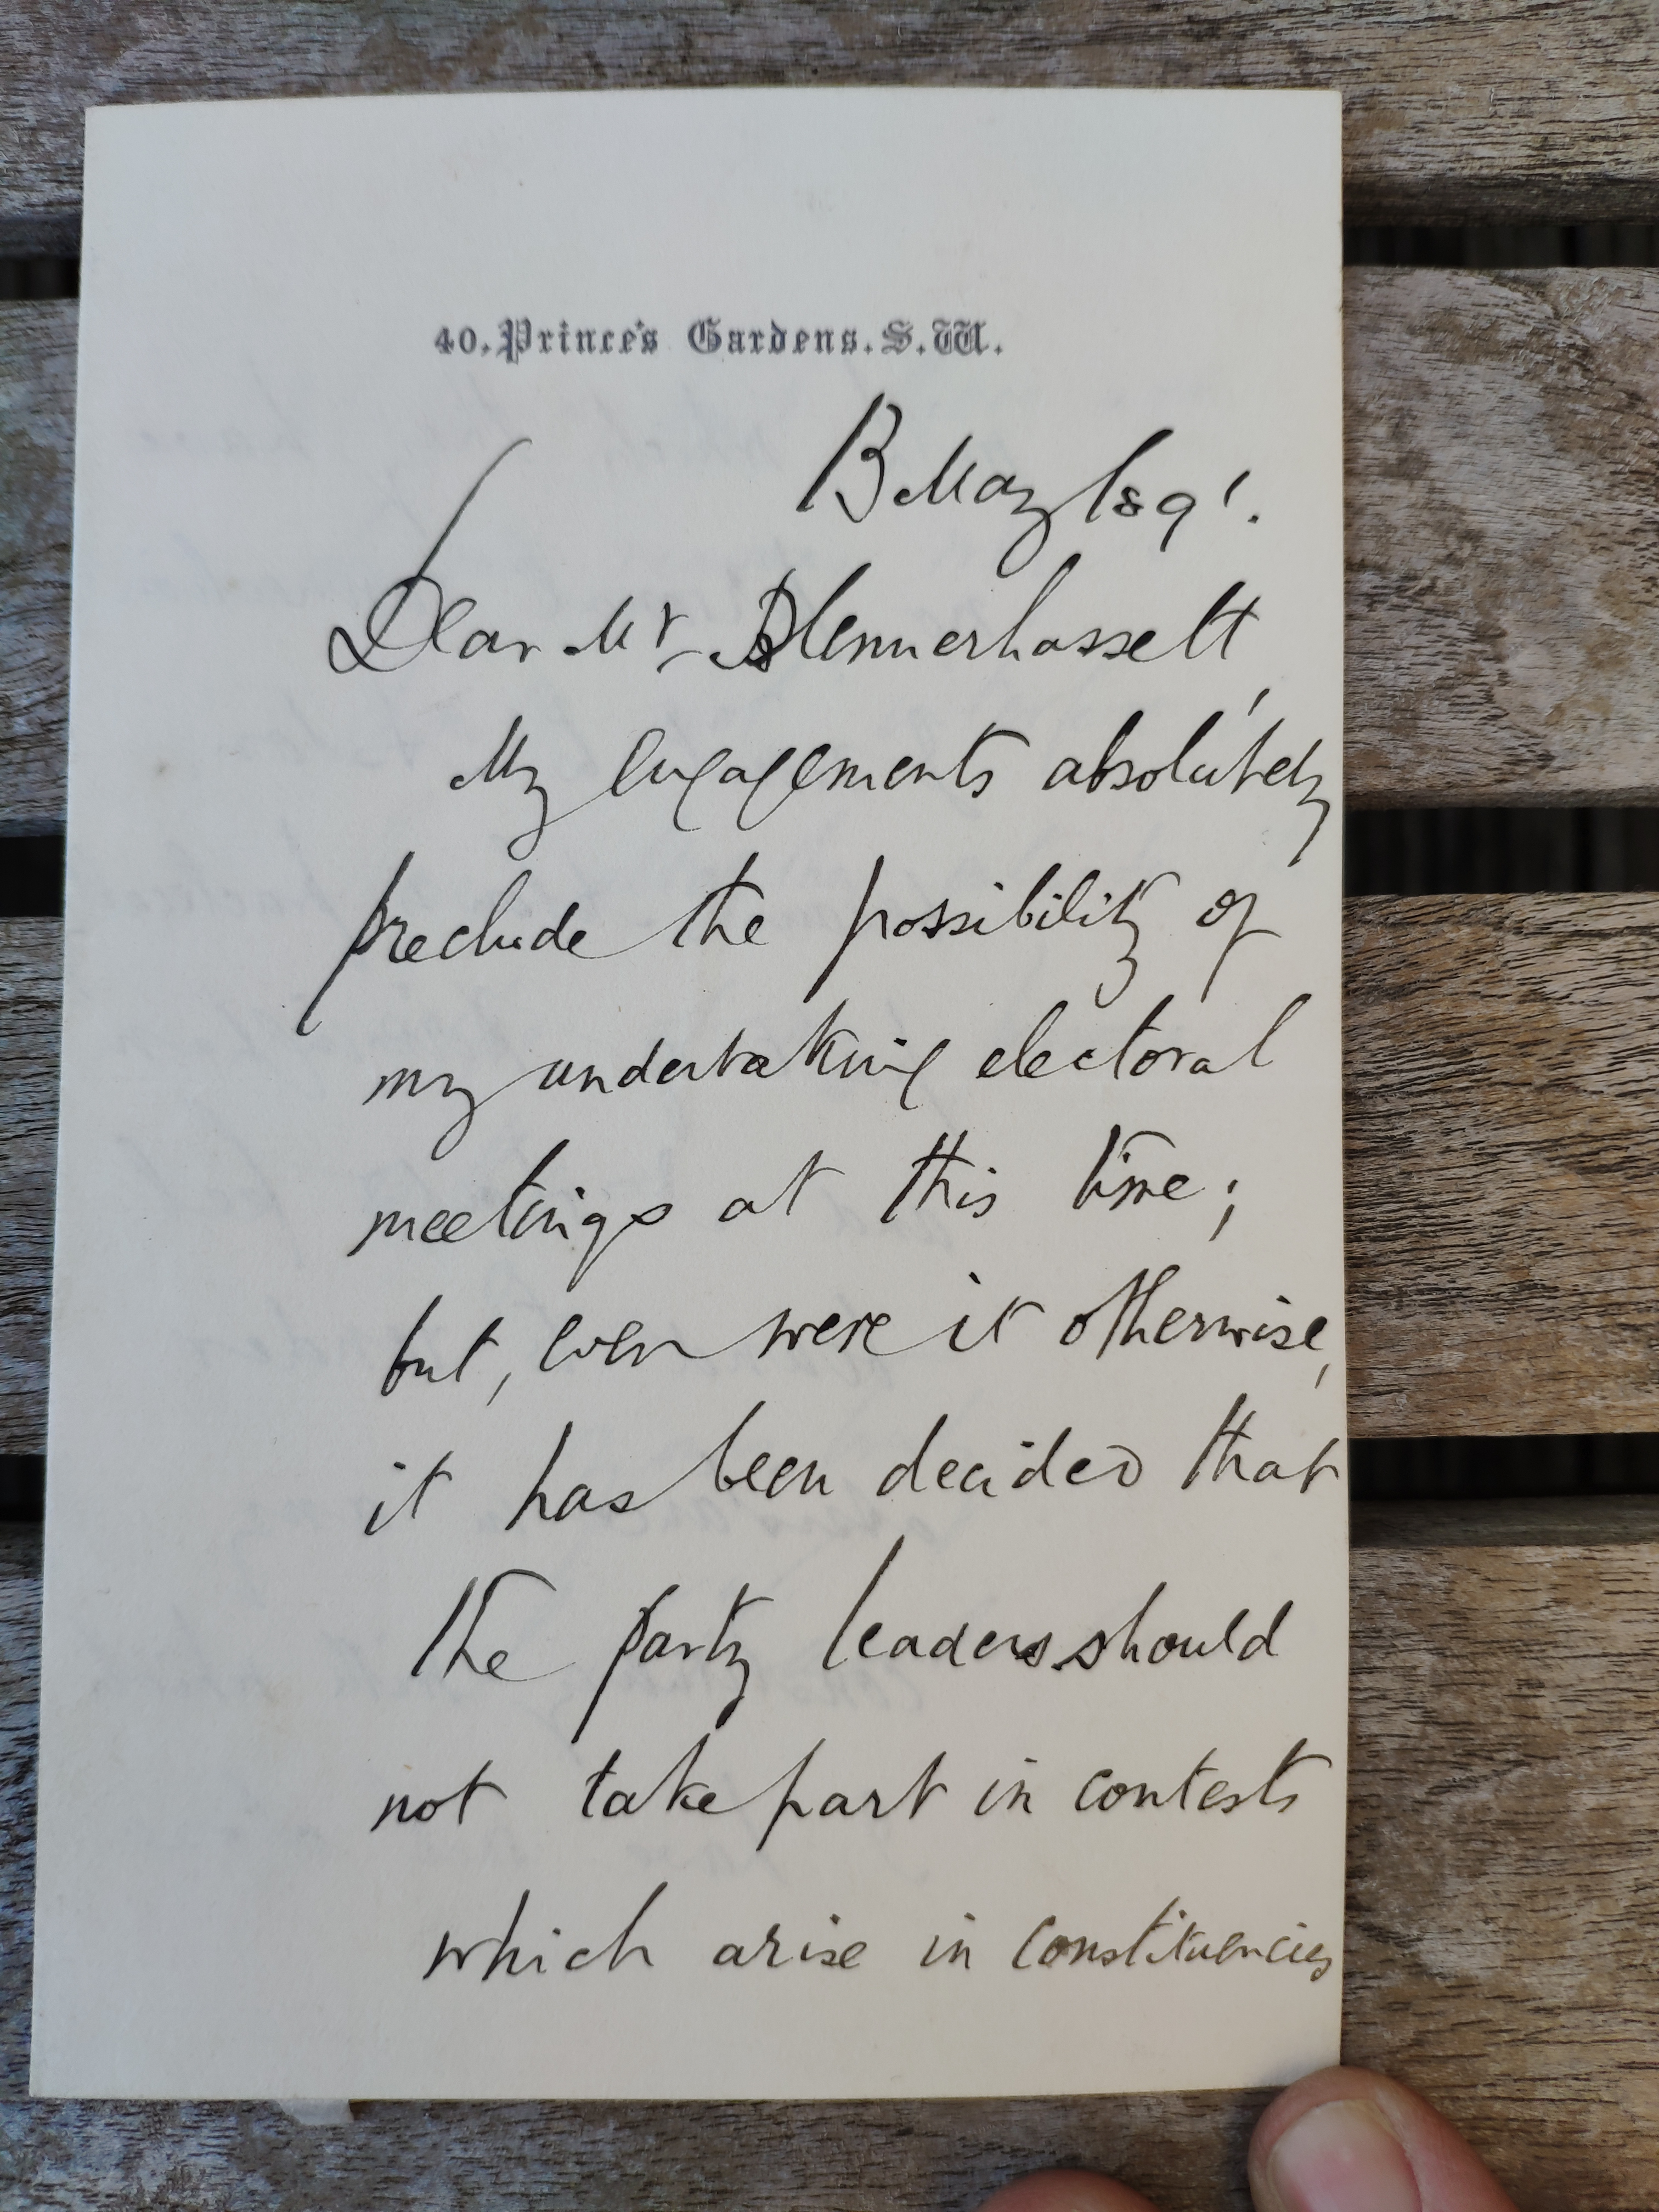 40. Prince's Gardens. S.W.
13 May 1891.
Dear Mr Blennerhassett,
My engagements absolutely
preclude the possibility of
my undertaking electoral
meetings at this time;
but, even were it otherwise,
it has been decided that
the party leaders should
not take part in contests
which arise in constituencies